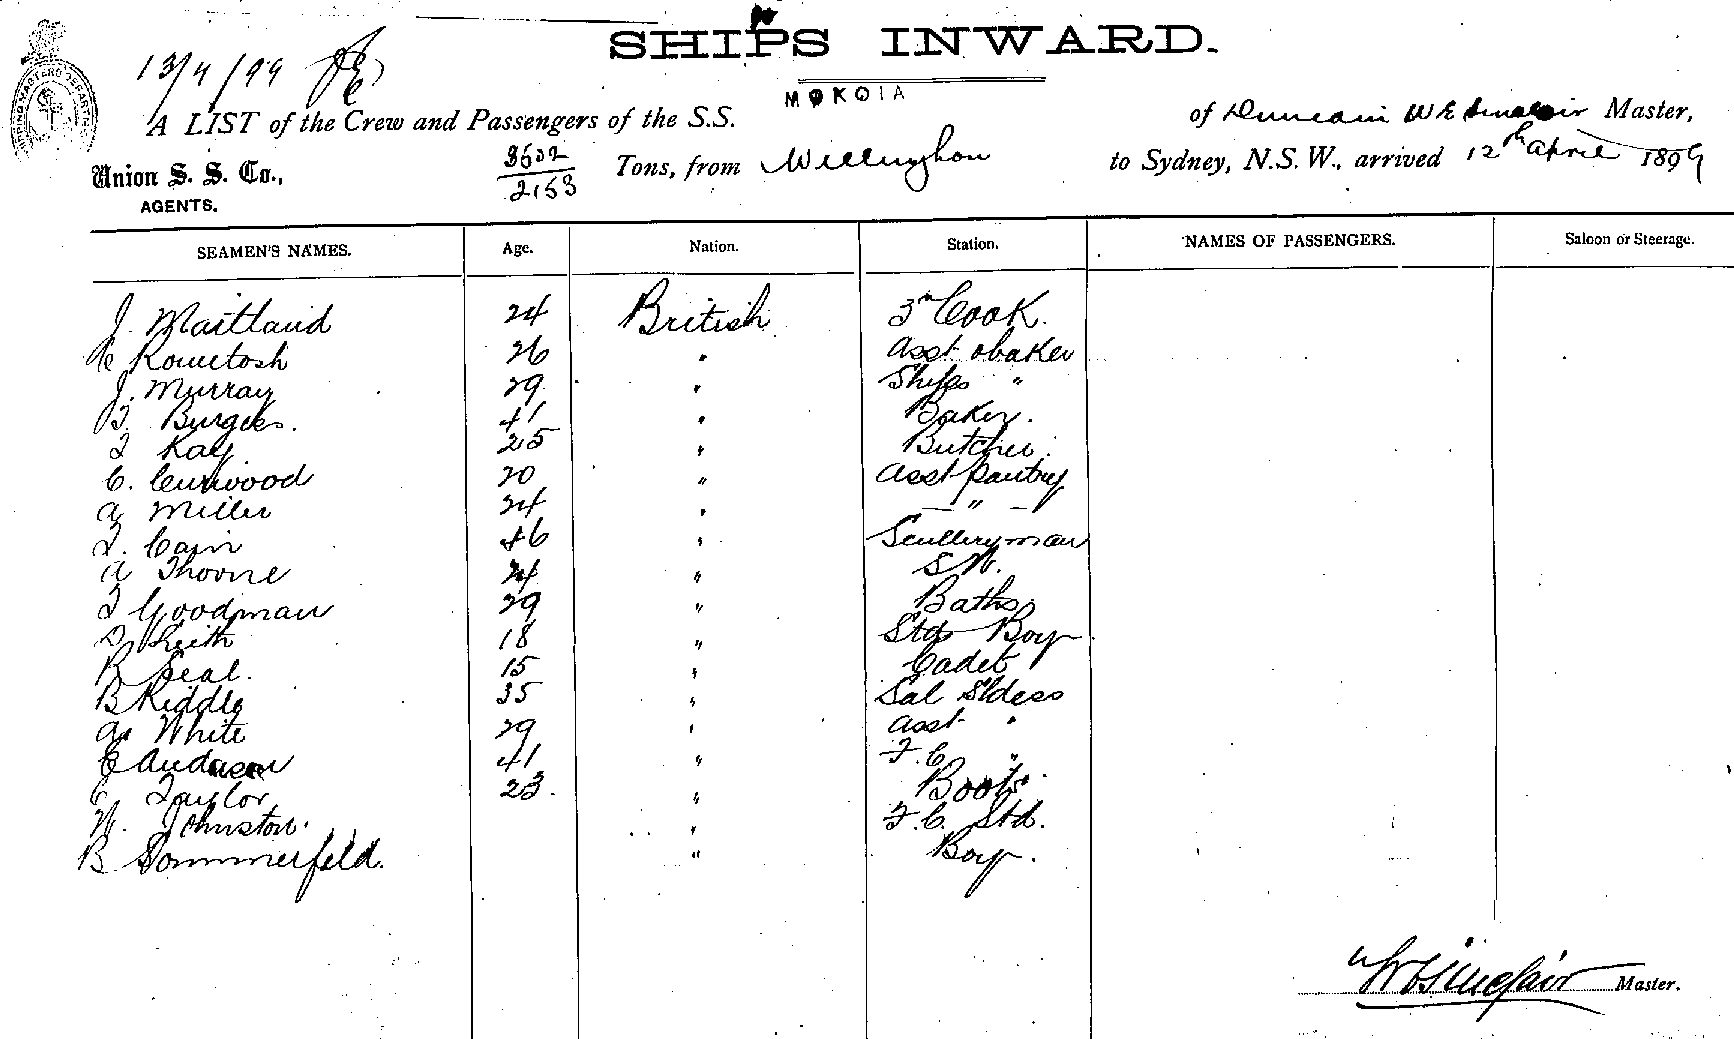 SHIPS INWARD.
13/4/99
MOKOIA
A LIST of the Crew and Passengers of the S.S. of Duncan Master,
Union S. S. Co., 3502 Tons, from Wellington to Sydney, N.S.W., arrived 12th April 1899
AGENTS. 2153
SEAMEN'S NAMES. Age. Nation. Station. NAMES OF PASSENGERS. Saloon or Steerage.
J. Maitland 24 British 3rd Cook.
26 " Asst Baker
J. Murray 29 " Ships "
T. Burgess. 41 " Baker.
T Kay 25 " Butcher.
C. Curwood 20 " Asst Pantry
A Miller 24 " — " —
T. Cain 46 " Scullery man
A Thoone 24 " S W.
T Goodman 29 " Baths.
Leith 18 " Stds Boy
R Seal. 15 " Cadet
B Riddle 35 " Sal Stdess
A. White 29 " Asst "
E Anderson 41 " F.C. "
C Taylor 23. " Boots.
W. Johnston. " F.C. Std.
B Sommerfeld. " Boy.
Sinclair Master.